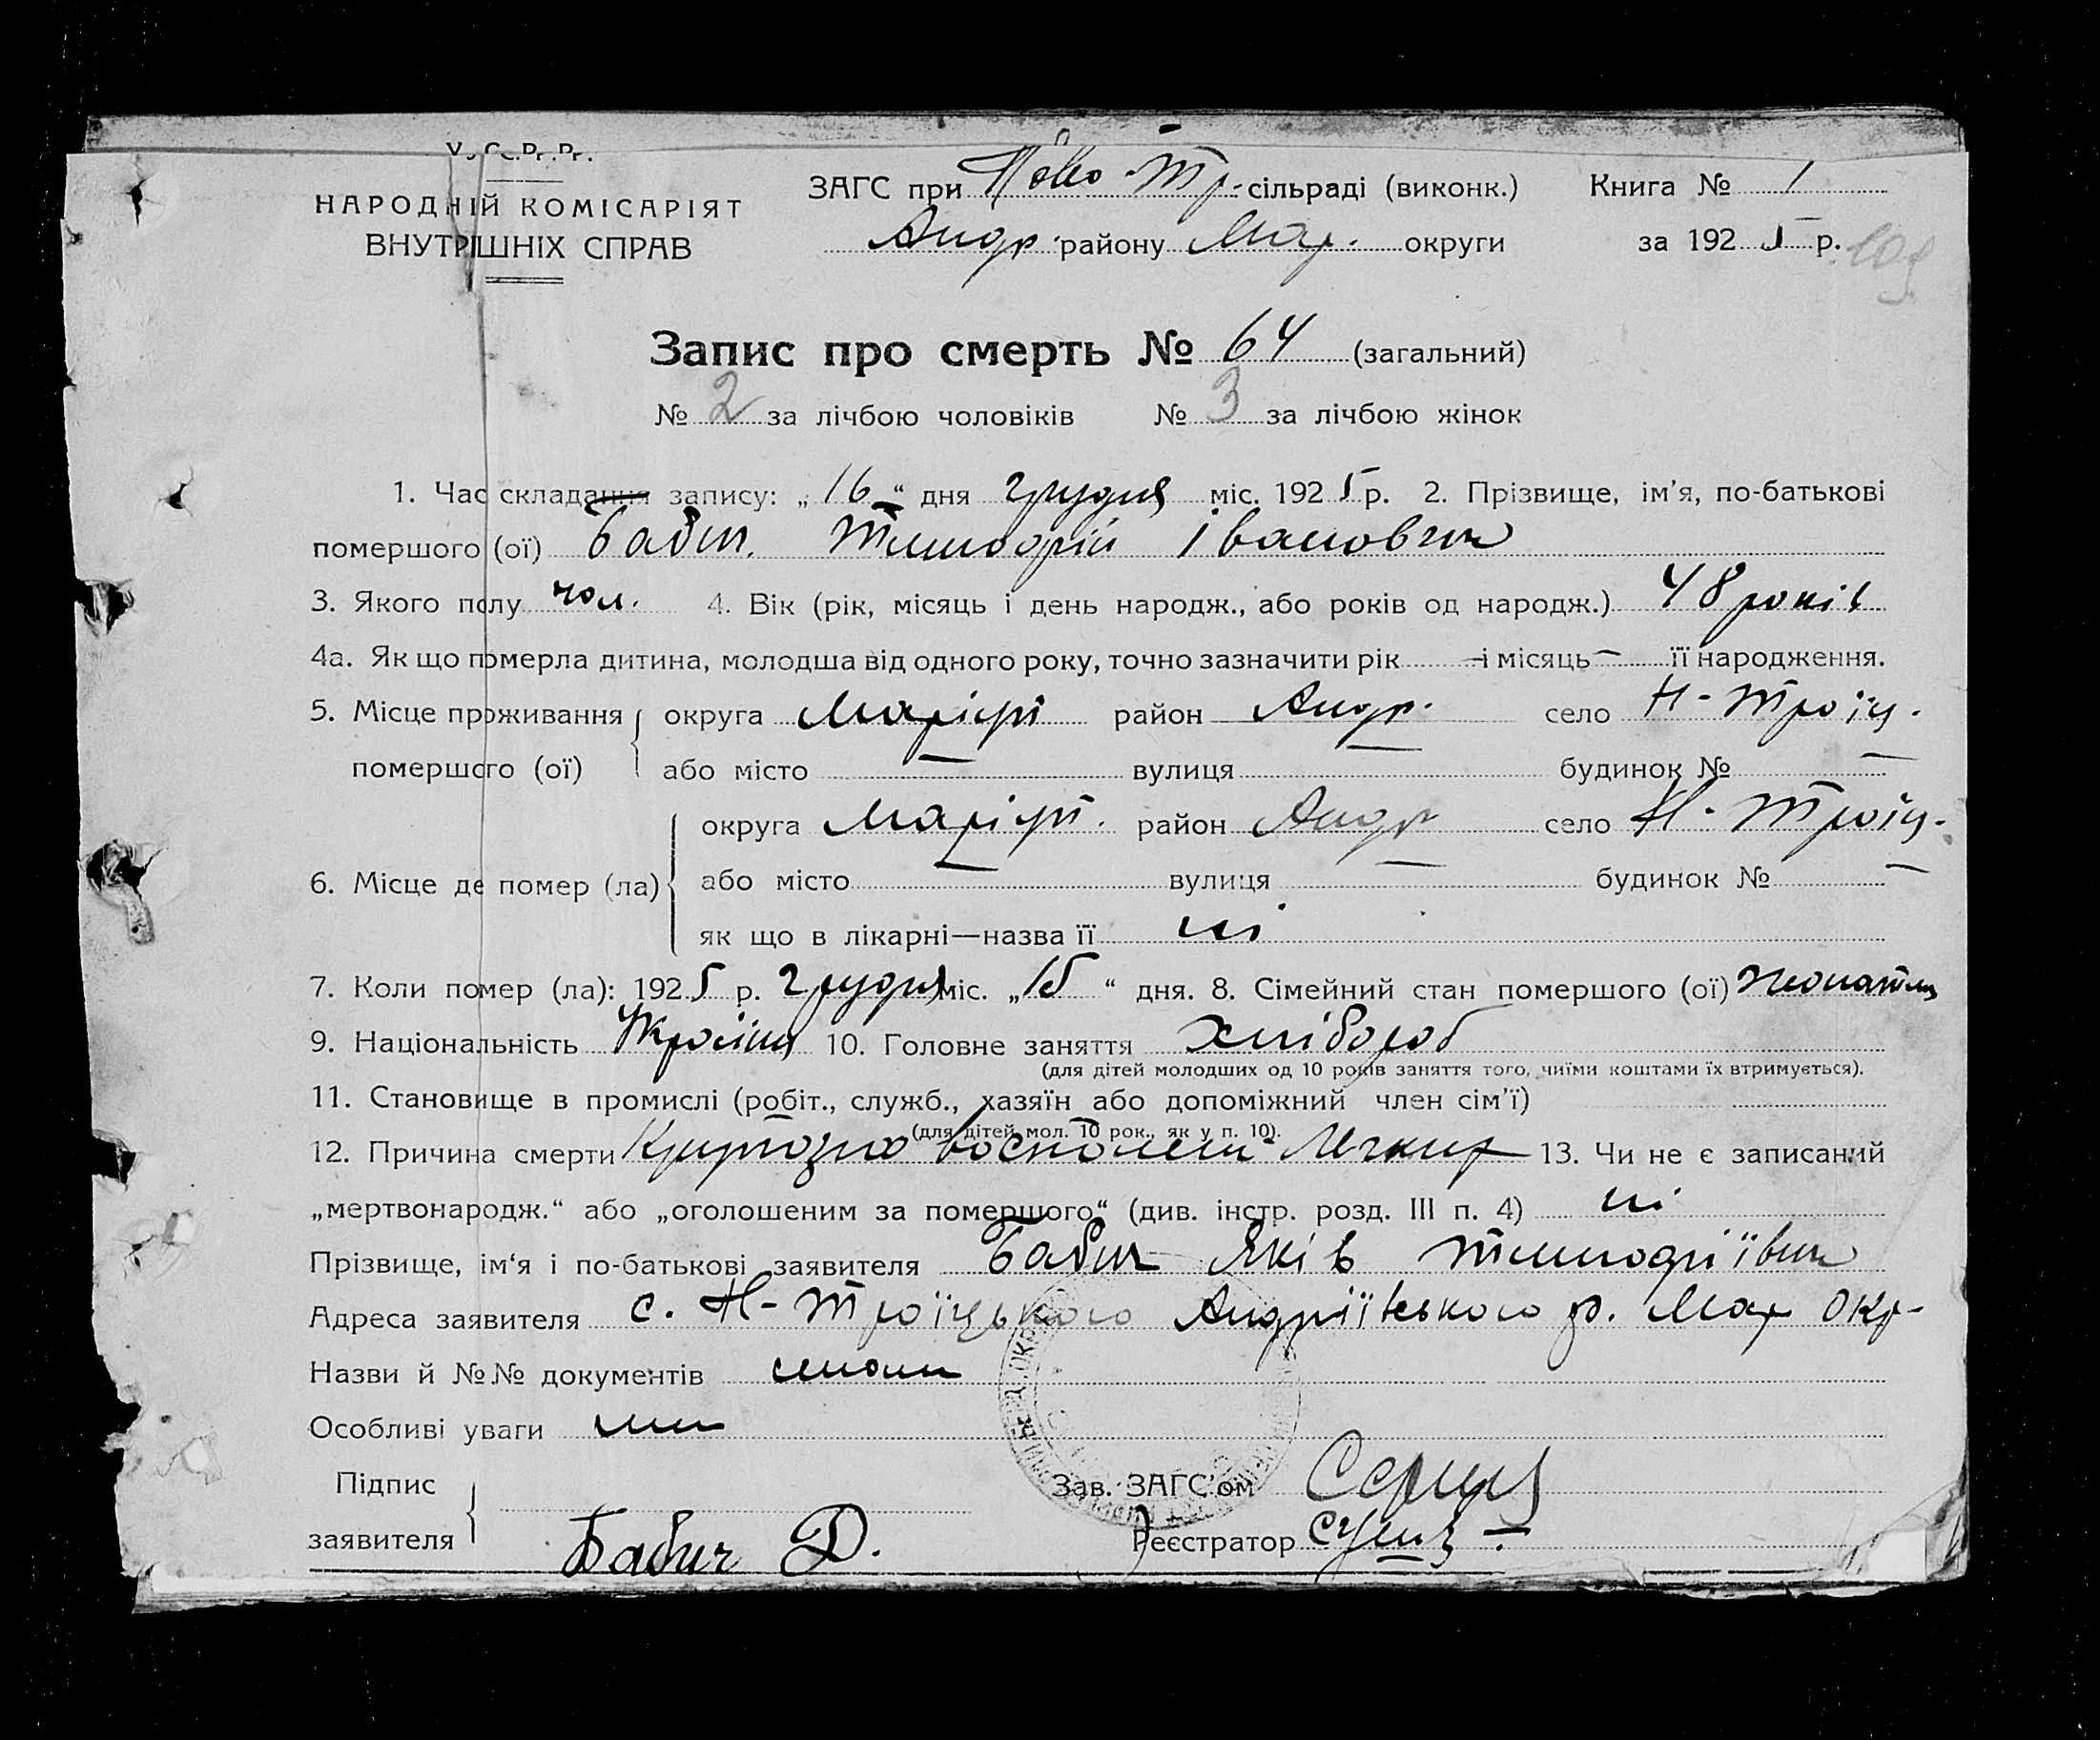 У.С.Р.Р.
НАРОДНІЙ КОМІСАРІЯТ
ВНУТРІШНІХ СПРАВ
ЗАГС при Ново-Тр. сільраді (виконк.)
Андр. району Мар. округи
Книга № 1
за 1925 р.
109
Запис про смерть № 64 (загальний)
№ 2 за лічбою чоловіків № 3 за лічбою жінок
1. Час складання запису: „16“ дня грудня міс. 1925 р. 2. Прізвище, ім'я, по-батькові
помершого (ої) Бабич Тимофій Іванович
3. Якого полу чол. 4. Вік (рік, місяць і день народж., або років од народж.) 48 років
4а. Як що померла дитина, молодша від одного року, точно зазначити рік – і місяць – її народження.
5. Місце проживання округа Маріуп район Андр. село Н-Троїц.
помершого (ої) або місто — вулиця — будинок № —
округа Маріуп. район Андр село Н-Троїц.
6. Місце де помер (ла) або місто — вулиця — будинок № —
як що в лікарні—назва її ні
7. Коли помер (ла): 1925 р. грудня міс. „15“ дня. 8. Сімейний стан помершого (ої) жонатий
9. Національність Українц 10. Головне заняття Хлібороб
(для дітей молодших од 10 років заняття того, чиїми коштами їх втримується).
11. Становище в промислі (робіт., служб., хазяїн або допоміжний член сім'ї)
(для дітей мол. 10 рок., як у п. 10).
12. Причина смерти Крупозно восполені Лечких 13. Чи не є записаний
„мертвонародж.“ або „оголошеним за помершого“ (див. інстр. розд. III п. 4) ні
Прізвище, ім'я і по-батькові заявителя Бабич Яків Тимофіївич
Адреса заявителя с. Н-Троїцького Андріївського р. Мар окр-
Назви й №№ документів
Особливі уваги
Підпис
заявителя Бабич Д.
Зав. ЗАГС'ом
Реєстратор